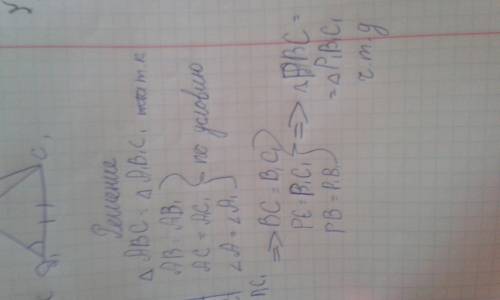 C₁
Решение
△ABC = △A₁B₁C₁, т.к
AB = AB₁ }
AC = AC₁ } по условию
∠A = ∠A₁ }
=> BC = B₁C₁ }
PC = B₁C₁ } => △PBC =
PB = P₁B₁ } = △P₁B₁C₁
ч.т.д